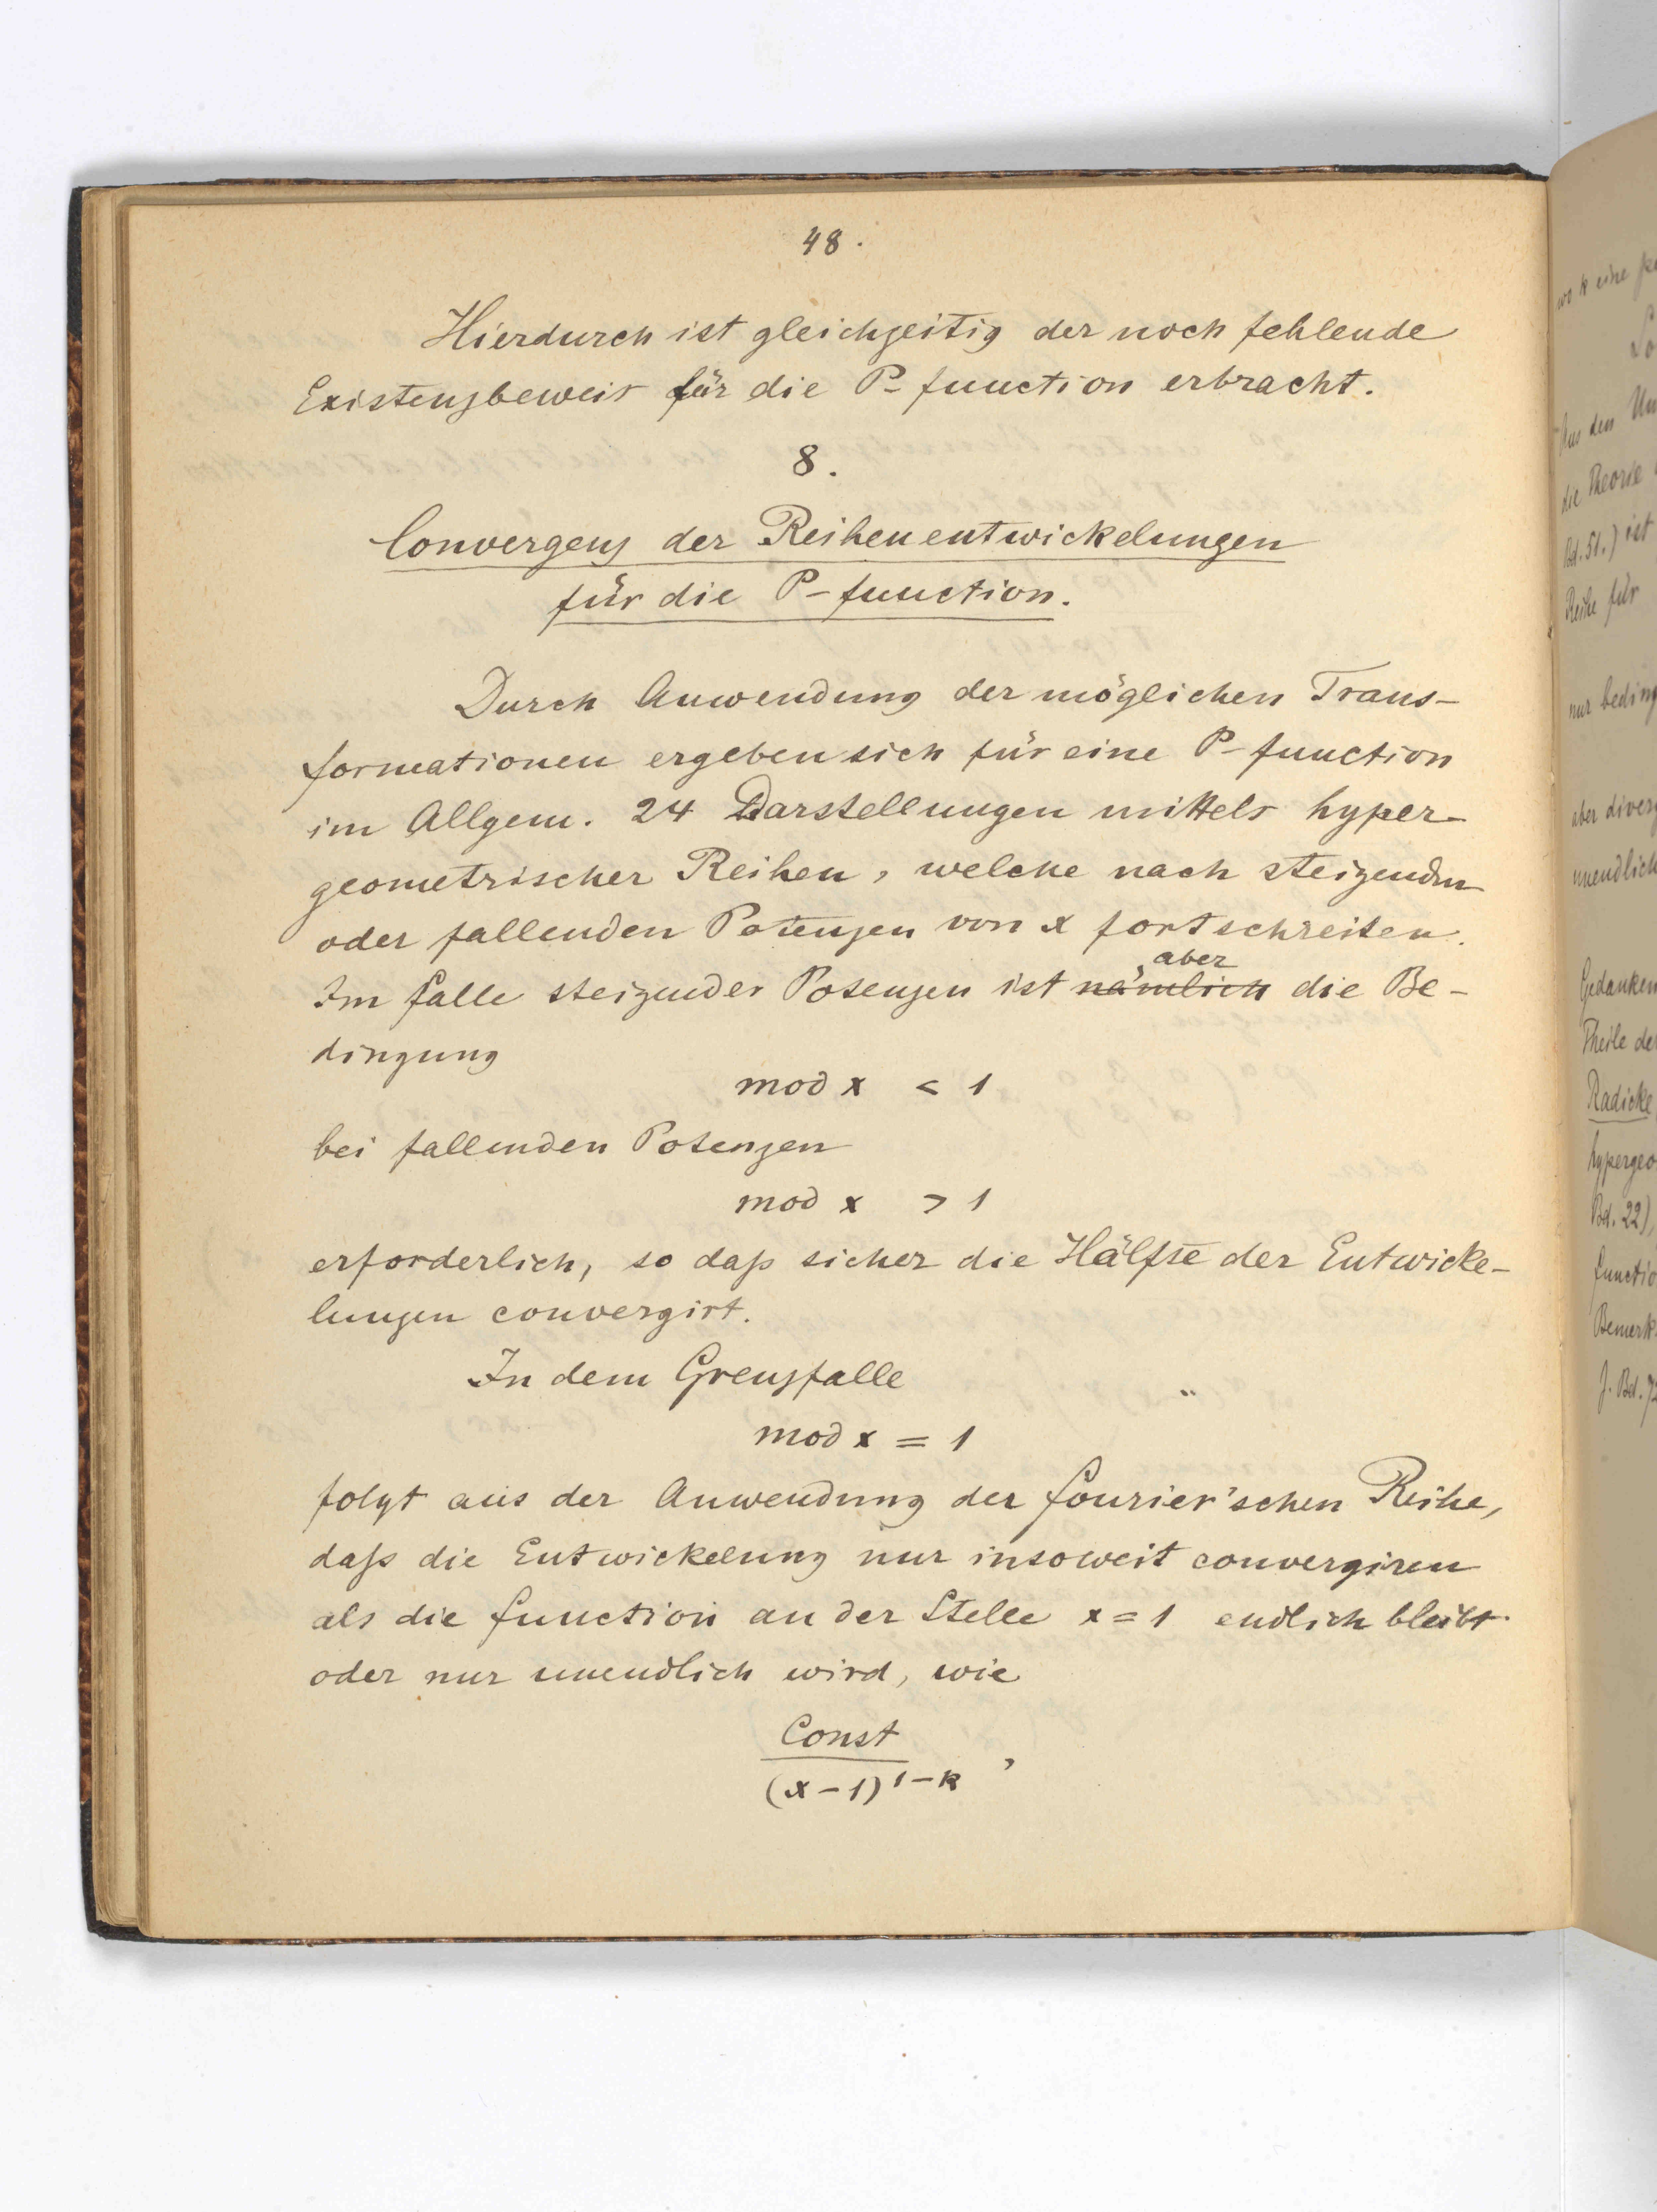 48.
Hierdurch ist gleichzeitig der noch fehlende
Existenzbeweis für die P-function erbracht.
8.
Convergenz der Reihenentwickelungen
für die P-function.
Durch Anwendung der möglichen Trans-
formationen ergeben sich für eine P-function
im Allgem. 24 Darstellungen mittels hyper-
geometrischer Reihen, welche nach steigenden
oder fallenden Potenzen von x fortschreiten.
aber
Im Falle steigender Potenzen ist nämlich die Be-
dingung
mod x < 1
bei fallenden Potenzen
mod x > 1
erforderlich, so daß sicher die Hälfte der Entwicke-
lungen convergirt.
In dem Grenzfalle
mod x = 1
folgt aus der Anwendung der Fourier'schen Reihe,
daß die Entwickelung nur insoweit convergiren
als die Function an der Stelle x = 1 endlich bleibt
oder nur unendlich wird, wie
Const
(x-1)^{1-k} ,
wo k eine
Aus den
die Theorie
Bd. 51.) ist
Reihe für
nur beding
aber diverg
unendlich
Gedanken
Theile de
Radicke
hypergeo
Bd. 22),
functio
Bemerk
J. Bd. 7